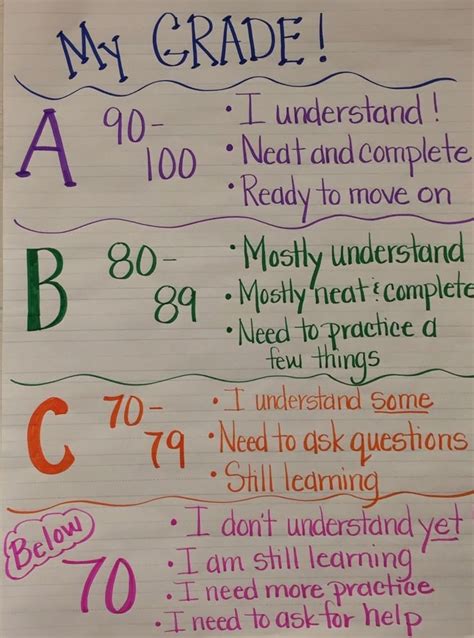 My GRADE!
A 90-100
• I understand!
• Neat and complete
• Ready to move on
B 80-89
• Mostly understand
• Mostly neat & complete
• Need to practice a
few things
C 70-79
• I understand some
• Need to ask questions
• Still learning
Below 70
• I don't understand yet
• I am still learning
• I need more practice
• I need to ask for help